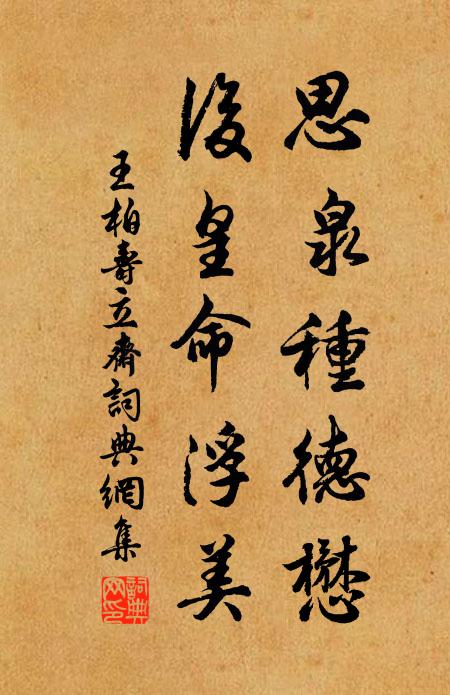 思泉種德懋
後皇命浮美
王柏壽立齋詞典網集
詞典网印